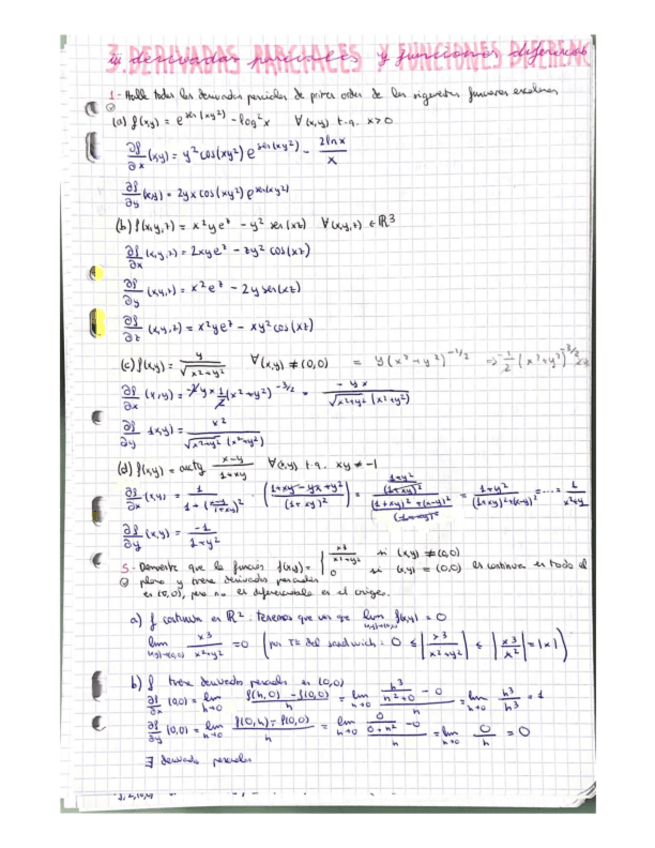 3. DERIVADAS PARCIALES Y FUNCIONES DIFERENC
derivadas parciales y funciones diferenciab
1- Halle todas las derivadas parciales de primer orden de las siguientes funciones escalares
(a) f(x,y) = e^{sen(xy²)} - log²x ∀(x,y) t.q. x>0
∂f/∂x (x,y) = y²cos(xy²) e^{sen(xy²)} - 2lnx/x
∂f/∂y (x,y) = 2yx cos(xy²) e^{sen(xy²)}
(b) f(x,y,z) = x²ye^z - y² sen(xz) ∀(x,y,z) ∈ ℝ³
∂f/∂x (x,y,z) = 2xye^z - zy² cos(xz)
∂f/∂y (x,y,z) = x²e^z - 2y sen(xz)
∂f/∂z (x,y,z) = x²ye^z - xy²cos(xz)
(c) f(x,y) = y/√(x²+y²) ∀(x,y) ≠ (0,0) = y(x²+y²)^{-1/2} => -1/2 (x²+y²)^{-3/2} 2x
∂f/∂x (x,y) = -2yx 1/2 (x²+y²)^{-3/2} = -yx/(√(x²+y²) (x²+y²))
∂f/∂y (x,y) = x²/(√(x²+y²) (x²+y²))
(d) f(x,y) = arctg (x-y)/(1+xy) ∀(x,y) t.q. xy ≠ -1
∂f/∂x (x,y) = 1/(1+((x-y)/(1+xy))²) · ((1+xy-yx+y²)/(1+xy)²) = ((1+y²)/(1+xy)²)/(((1+xy)²+(x-y)²)/(1+xy)²) = (1+y²)/((1+xy)²+(x-y)²) = ... = 1/(x²+1)
∂f/∂y (x,y) = -1/(1+y²)
5- Demuestre que la función f(x,y) = { x³/(x²+y²) si (x,y) ≠ (0,0)
0 si (x,y) = (0,0) es continua en todo el
plano y tiene derivadas parciales
en (0,0), pero no es diferenciable en el origen.
a) f continua en ℝ². Tenemos que ver que lim_{(x,y)→(0,0)} f(x,y) = 0
lim_{(x,y)→(0,0)} x³/(x²+y²) = 0 (por Tª del sandwich: 0 ≤ |x³/(x²+y²)| ≤ |x³/x²| = |x|)
b) f tiene derivadas parciales en (0,0)
∂f/∂x (0,0) = lim_{h→0} (f(h,0) - f(0,0))/h = lim_{h→0} (h³/(h²+0) - 0)/h = lim_{h→0} h³/h³ = 1
∂f/∂y (0,0) = lim_{h→0} (f(0,h) - f(0,0))/h = lim_{h→0} (0/(0+h²) - 0)/h = lim_{h→0} 0/h = 0
∃ derivadas parciales